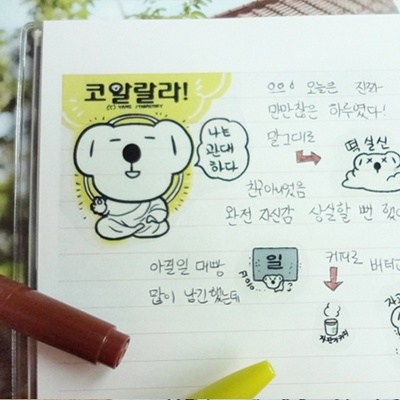 코알랄라!
나는
관대
하다
으으 오늘은 진짜
만만찮은 하루였다!
말그대로
떡 실신
친구아니었음
완전 자신감 상실할 뻔 했
아픈일 대빵
많이 남긴했는데
일
케디로 버터